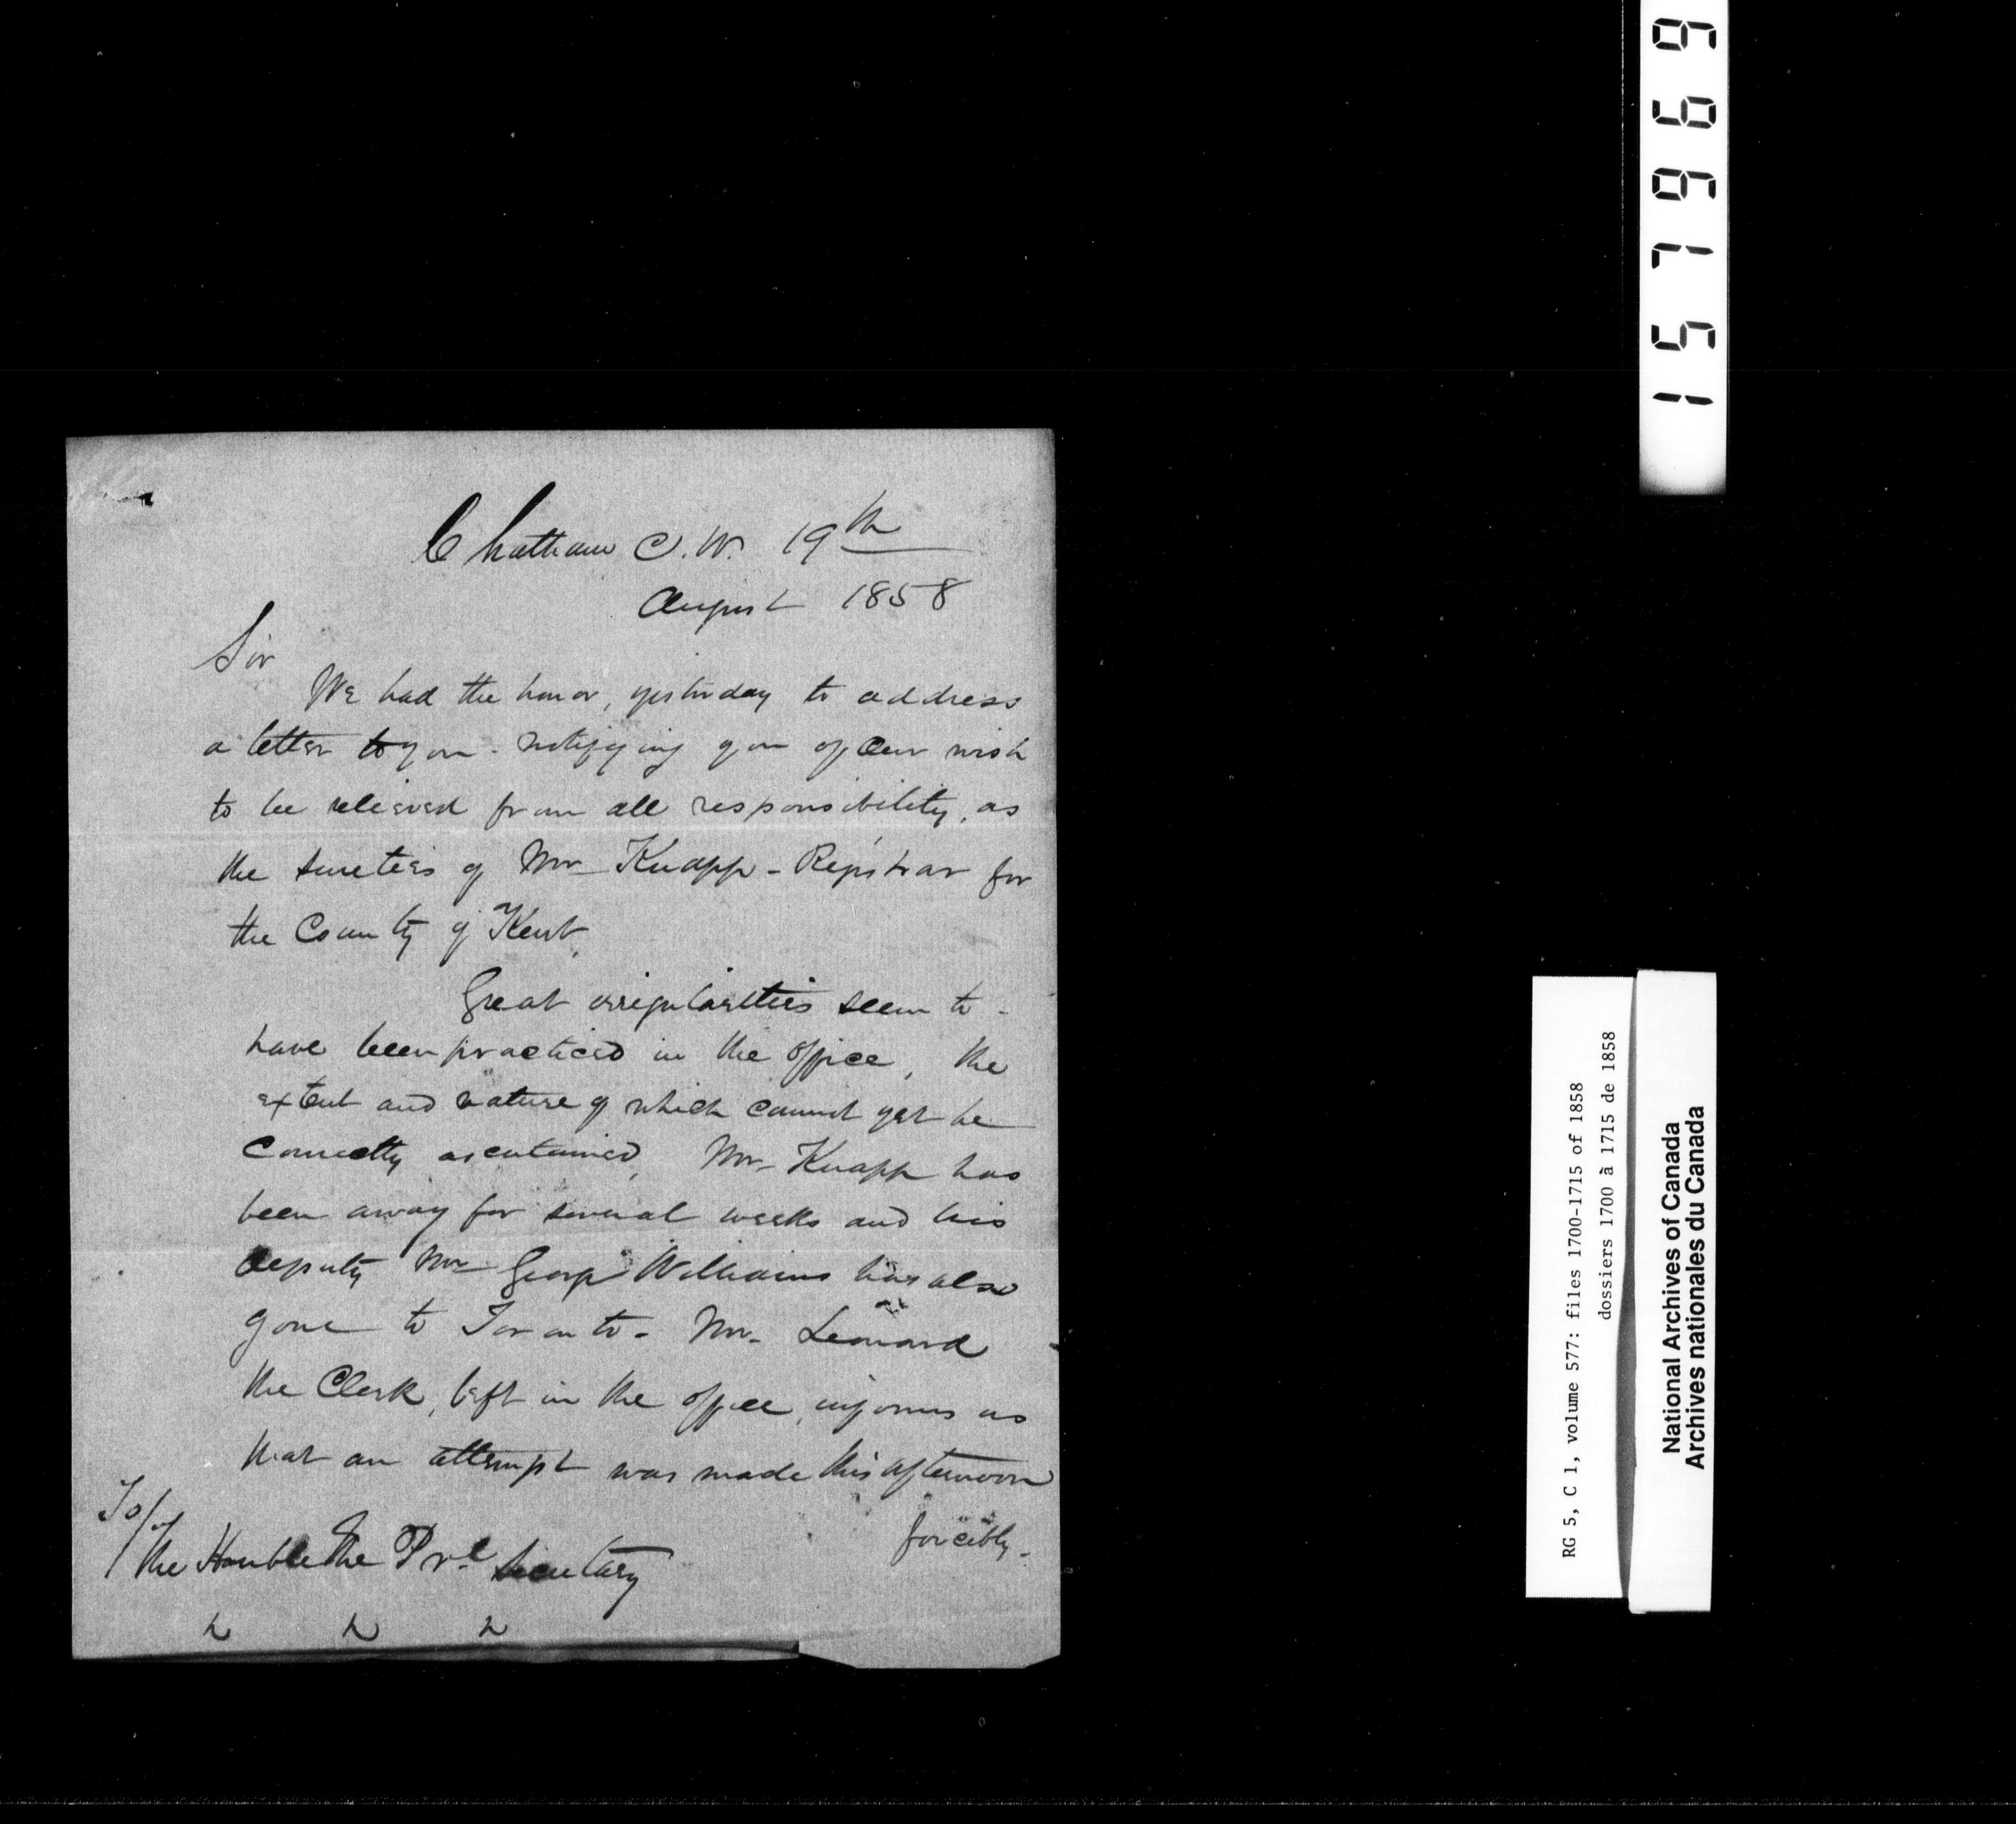 Chatham C.W. 19th
August 1858
Sir
We had the honor, yesterday to address
a letter to you - notifying you of our wish
to be relieved from all responsibility, as
the sureties of Mr Knapp - Registrar for
the County of Kent.
Great irregularities seem to -
have been practiced in the office, the
extent and nature of which cannot yet be
Correctly ascertained, Mr Knapp has
been away for several weeks and his
deputy Mr George Williams has also
gone to Toronto - Mr. Leonard
the Clerk, left in the office, informs us
that an attempt was made this afternoon
forcibly -
To/
The Honble The Prvl Secretary
151699
RG 5, C 1, volume 577: files 1700-1715 of 1858
dossiers 1700 à 1715 de 1858
National Archives of Canada
Archives nationales du Canada